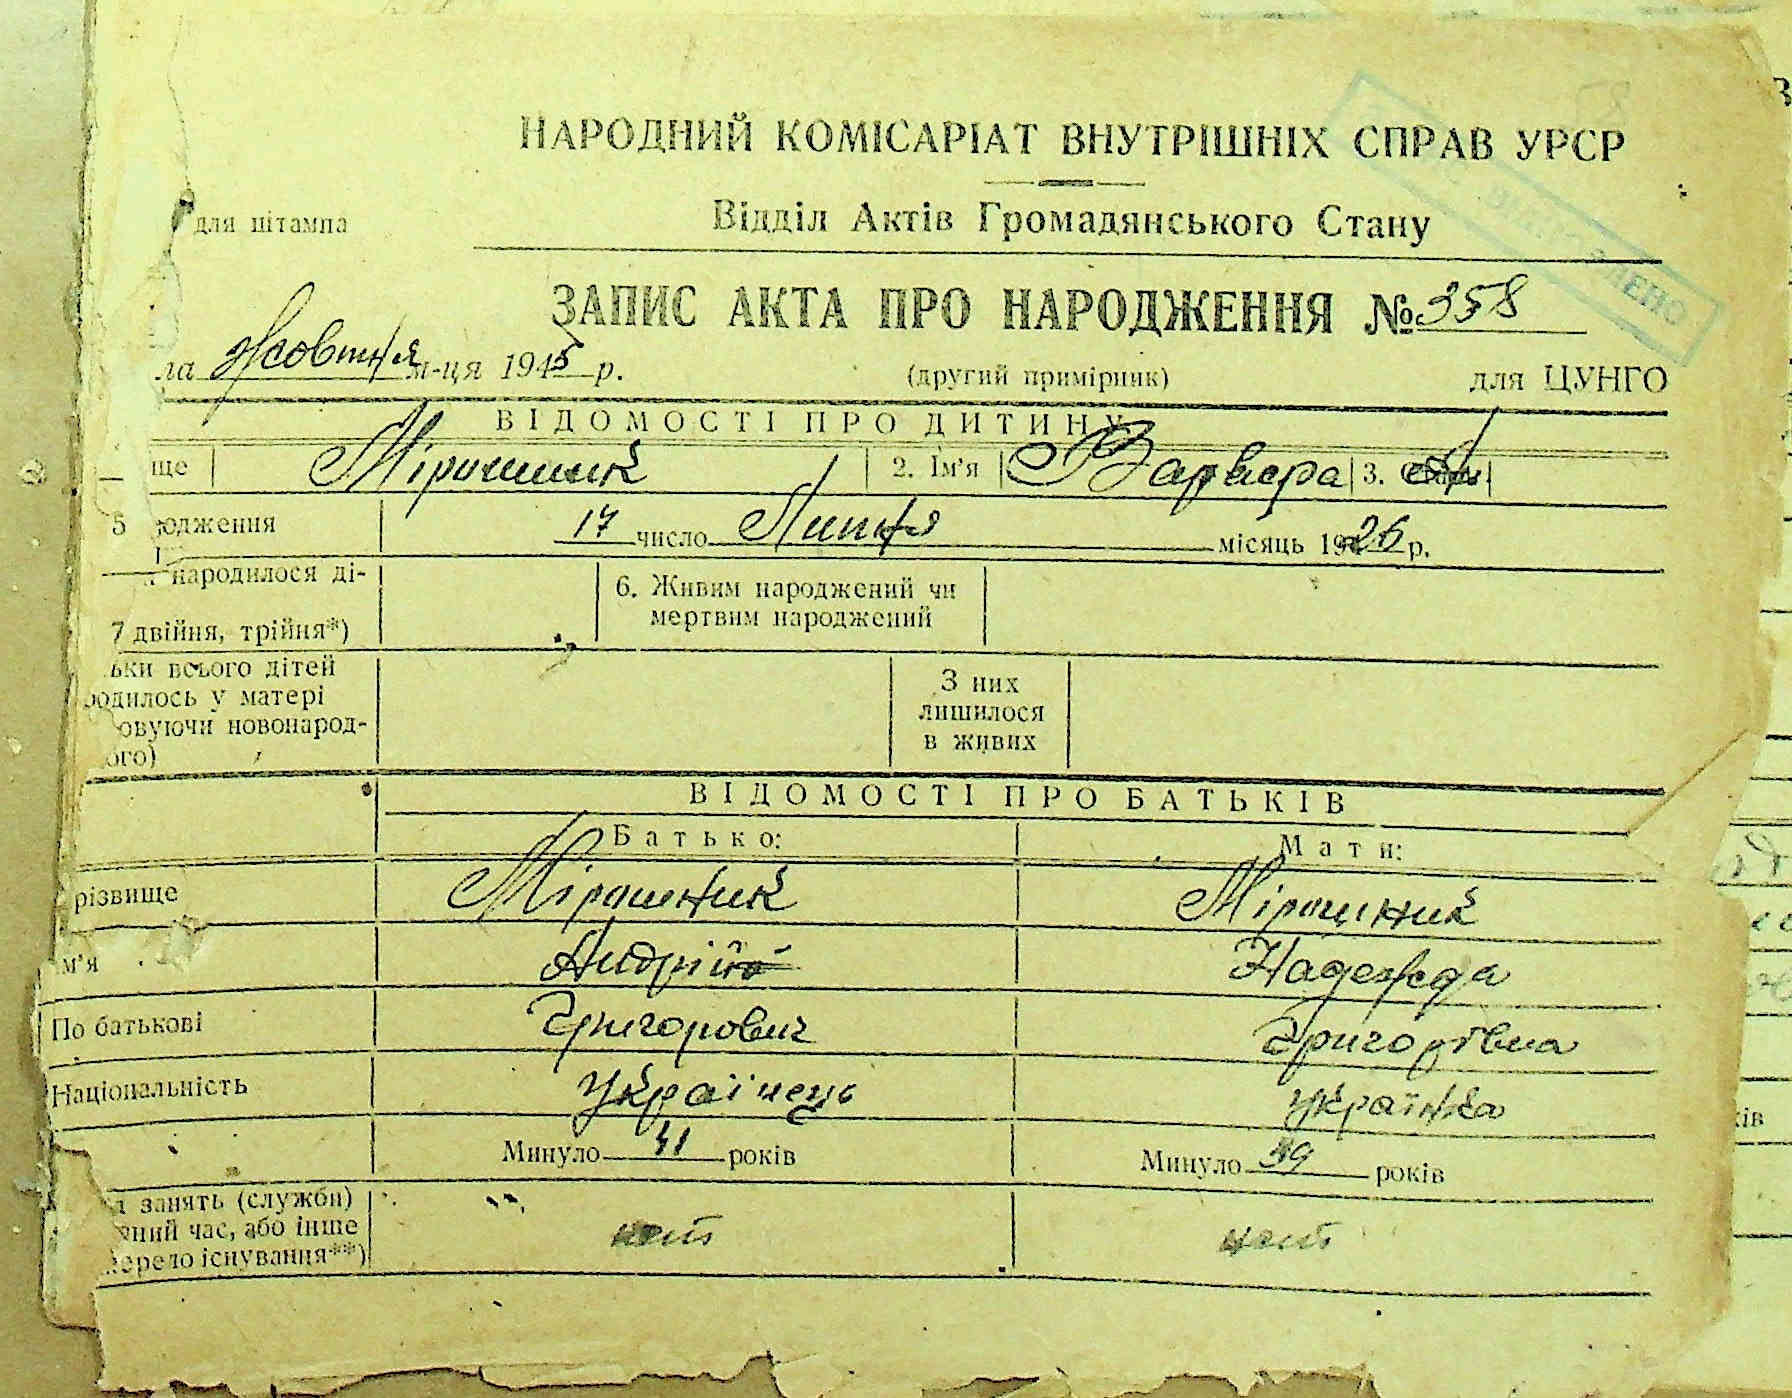 НАРОДНИЙ КОМІСАРІАТ ВНУТРІШНІХ СПРАВ УРСР
для штампа
Відділ Актів Громадянського Стану
ЗАПИС АКТА ПРО НАРОДЖЕННЯ № 358
ла Жовтня м-ця 1945 р. (другий примірник) для ЦУНГО
ВІДОМОСТІ ПРО ДИТИНУ
ще Мірошник 2. Ім'я Варвара 3.
5 родження 17 число Липня місяць 1926 р.
народилося ді-
6. Живим народжений чи
мертвим народжений
7 двійня, трійня*)
ьки всього дітей
родилось у матері
овуючи новонарод-
ого)
З них
лишилося
в живих
ВІДОМОСТІ ПРО БАТЬКІВ
Батько: Мати:
різвище Мірошник Мірошник
м'я Андрій Надежда
По батькові Григорович Григорівна
Національність Українець Українка
Минуло 41 років Минуло 39 років
занять (служби)
ний час, або інше
жерело існування**)